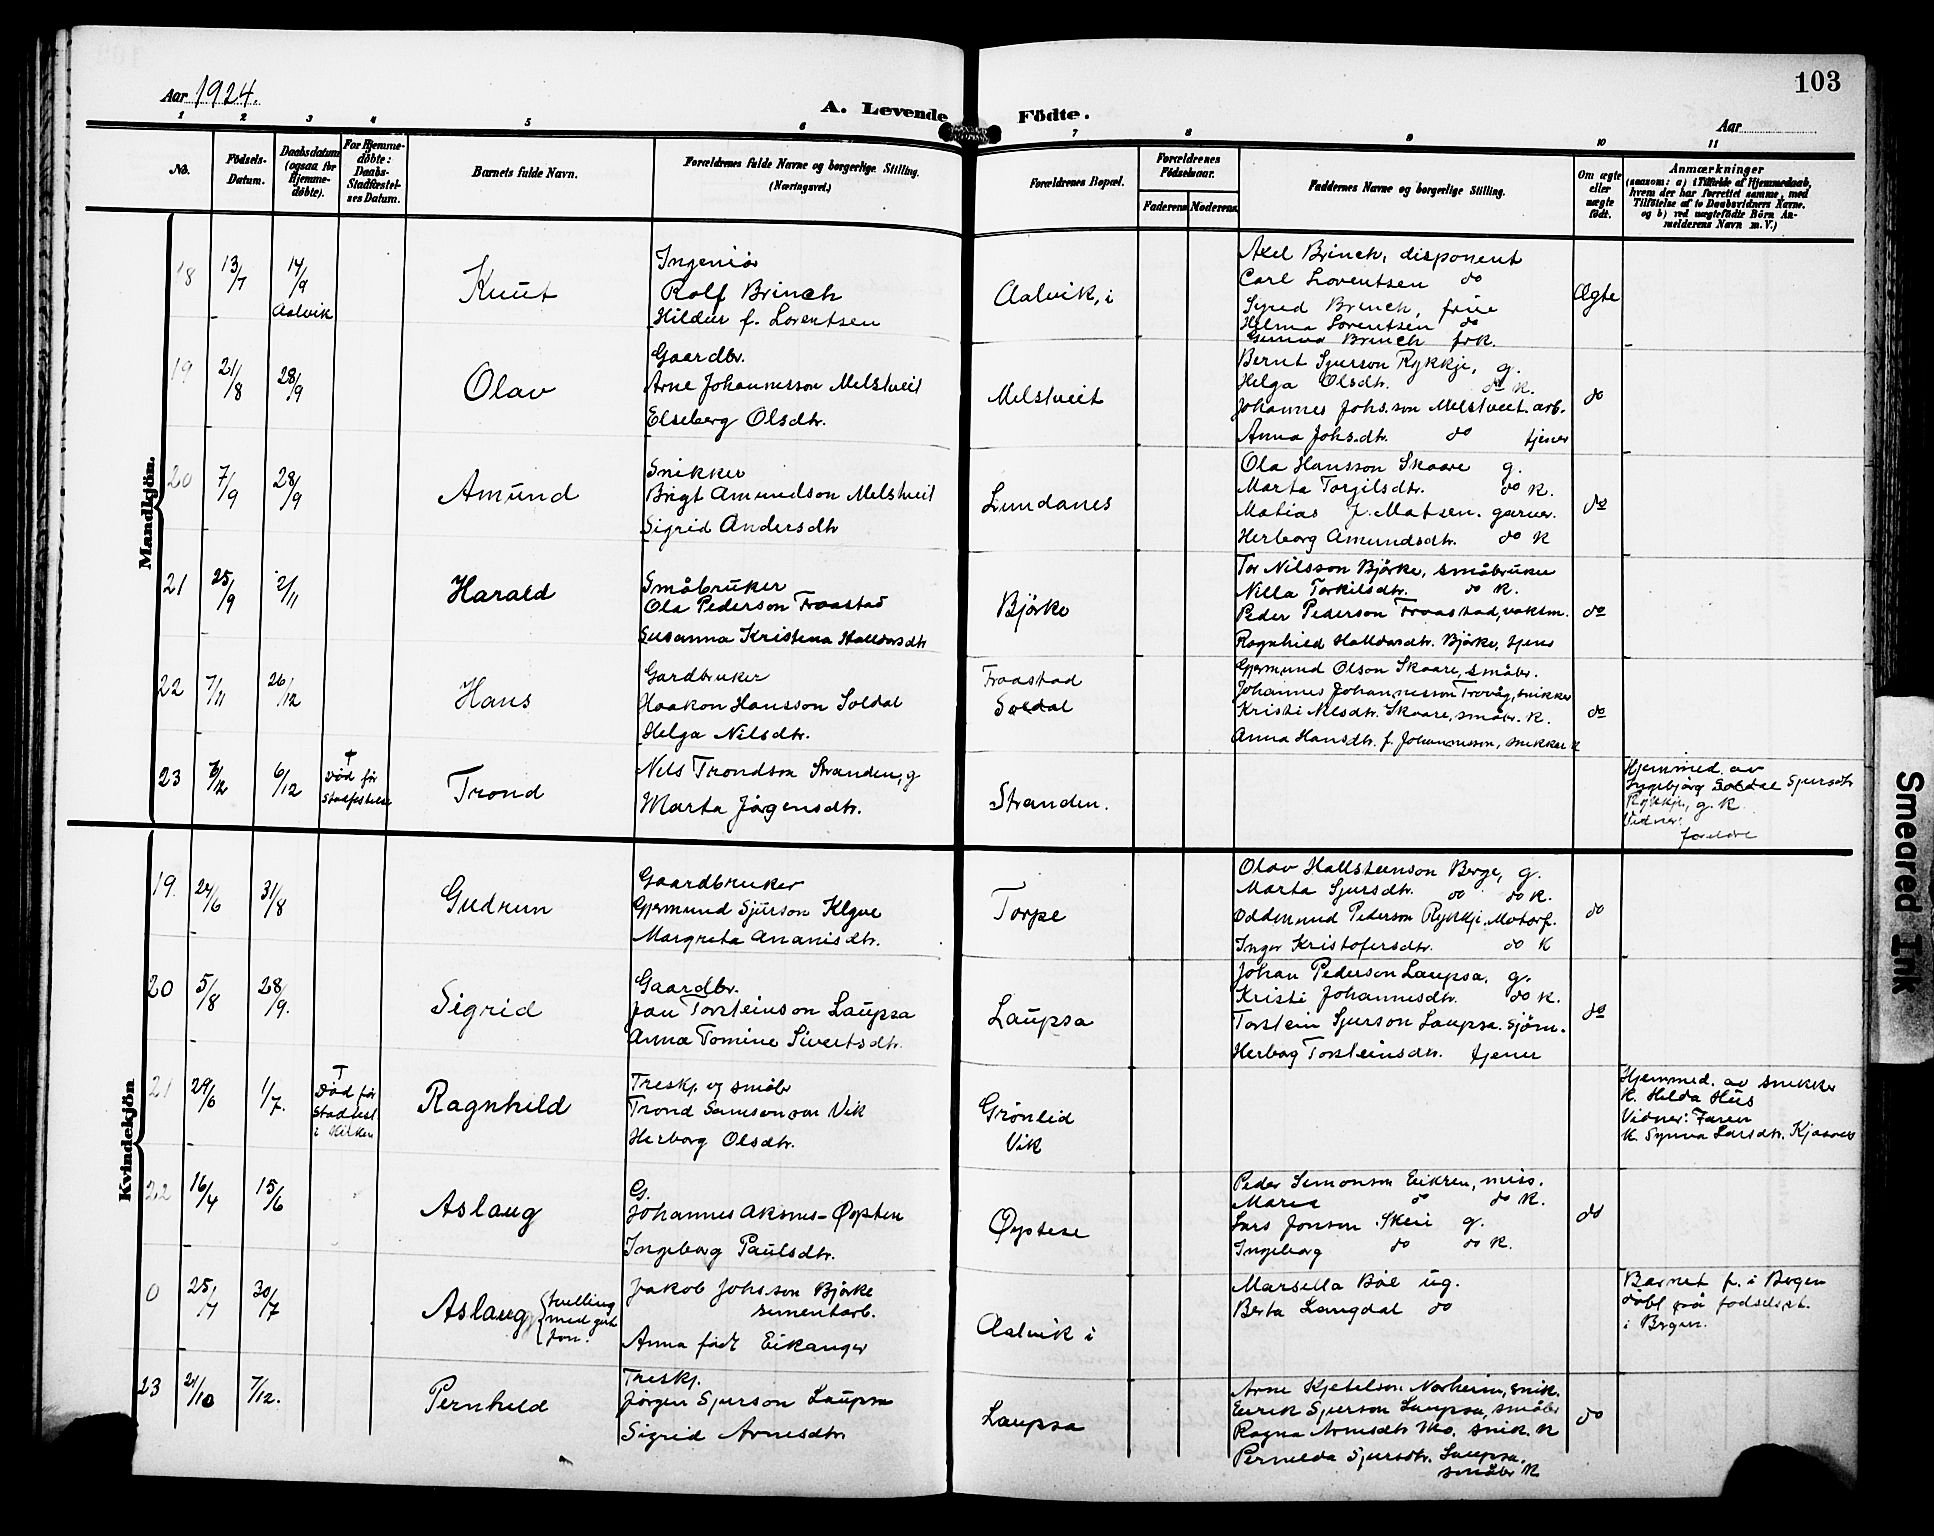 103
Aar 1924.
A. Levende Födte.
Aar
1 2 3 4 5 6 7 8 9 10 11
No.
Födsels-
Datum.
Daabsdatum
(ogsaa for
Hjemme-
döbte).
For Hjemme-
döbte:
Daabs-
Stadfæstel-
ses Datum.
Barnets fulde Navn.
Forældrenes fulde Navne og borgerlige Stilling.
(Næringsvei.)
Forældrenes Bopæl.
Forældrenes
Födselsaar.
Faderens
Moderens
Faddernes Navne og borgerlige Stilling.
Om ægte
eller
uægte
födt.
Anmærkninger
(saasom: a) i Tilfælde af Hjemmedaab,
hvem der har forrettet samme, med
Tilföielse af to Daabsvidners Navne.
og b) ved uægtefödte Börn An-
melderens Navn m. V.)
Mandkjön.
18 13/7 14/9
Aalvik
Knut
Ingeniör
Rolf Brinch
Hildur f. Lorentsen
Aalvik, i
Axel Brinch, disponent
Carl Lorentsen do
Syred Brinch, frue
Helma Lorentsen do
Brinch frk.
Ægte
19 21/8 28/9
Olav
Gaardbr.
Arne Johannesson Melstveit
Elseberg Olsdtr.
Melstveit
Bernt Sjurson Rykkje, g.
Helga Olsdtr. do K.
Johannes Johs.son Melstveit arb.
Anna Johs.dtr. do tjener
do
20 7/9 28/9
Amund
Snikker
Brigt Amundson Melstveit
Sigrid Andersdtr
Lundanes
Ola Hansson Skaare g.
Marta Torgilsdtr. do K.
Matias J. Matsen. garver.
Herborg Amundsdtr. do K
do
21 25/9 2/11
Harald
Småbruker
Ola Pederson Fraastad
Susanna Kristina Halldorsdtr
Bjørke
Tor Nilsson Bjørke, småbruker
Nilla Torkilsdtr. do K.
Peder Pederson Fraastad, vaktm.
Ragnhild Halldorsdtr. Bjørke, tjener
do
22 7/11 26/12
Hans
Gardbruker
Haakon Hansson Soldal
Helga Nilsdtr.
Fraastad
Soldal
Gjermund Olson Skaare, småbr.
Johannes Johannesson Trovåg, snikker
Kristi Nilsdtr. Skaare, småbr. K.
Anna Hansdtr. f. Johannesson, snikker K
do
23 6/12 6/12
†
Død før
Stadfestelse
Trond
Nels Trondson Stranden, g
Marta Jørgensdtr.
Stranden.
Hjemmed. av
Ingebjørg Sjursdtr
Rykkje, g. K.
Vidner:
foreldre
Kvindekjön
19. 24/6 31/8
Gudrun
Gaardbruker
Gjermund Sjurson Klyve
Margreta Ananisdtr.
Torpe
Olav Hallsteinson Berge, g.
Marta Sjursdtr. do do K.
Oddmund Pederson Rykkje. Motorf.
Inger Kristofersdtr. do K
do
20 5/8 28/9.
Sigrid
Gaardbr.
Jon Torsteinson Laupsa
Anna Tomine Sivertsdtr.
Laupsa
Johan Pederson Laupsa, g.
Kristi Johannesdtr. do K.
Torstein Sjurson Laupsa. sjøm.
Herborg Torsteinsdtr. tjener
do
21 29/6 1/7.
†
Død før
Stadfest
i Kirken
Ragnhild
Treskj. og småbr
Trond Samsonson Vik
Herborg Olsdtr.
Grønlid
Vik
Hjemmed. av snikker
K. Hilda Hus
Vidner: Faren
K. Synva Larsdtr.
22 16/4 15/6
Aslaug
G.
Johannes Aksnes-Øysten
Ingeborg Paulsdtr.
Øystese
Peder Simonson Eikren, miss.
Maria do do K.
Lars Jonson Skeie g.
Ingeborg do do K.
do
0 25/7 30/7
Aslaug
tvilling
med gut
Jon.
Jakob Johs.son Bjørke
sementarb.
Anna født Eikanger
Aalvik i
Marsella Bøe ug.
Berta Langdal do
Barnet f. i Bergen
døbt på fødselsst.
i Bergen.
23 24/10 7/12.
Pernhild
Treskj.
Jørgen Sjurson Laupsa
Sigrid Arnesdtr
Laupsa
Arne Kjetelson Norheim, snik.
Eirik Sjurson Laupsa, småbr
Ragna Arnesdtr. Mo, snik. K
Pernilda Sjursdtr. Laupsa.
småbr K
do
Smeared Ink